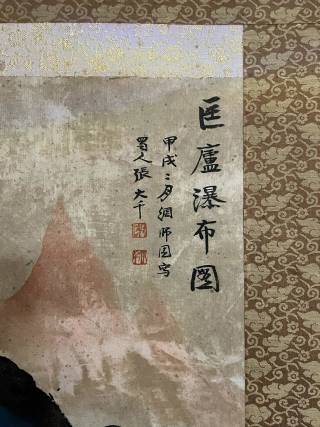 匡廬瀑布圖
甲戌二月網師園寫
蜀人張大千